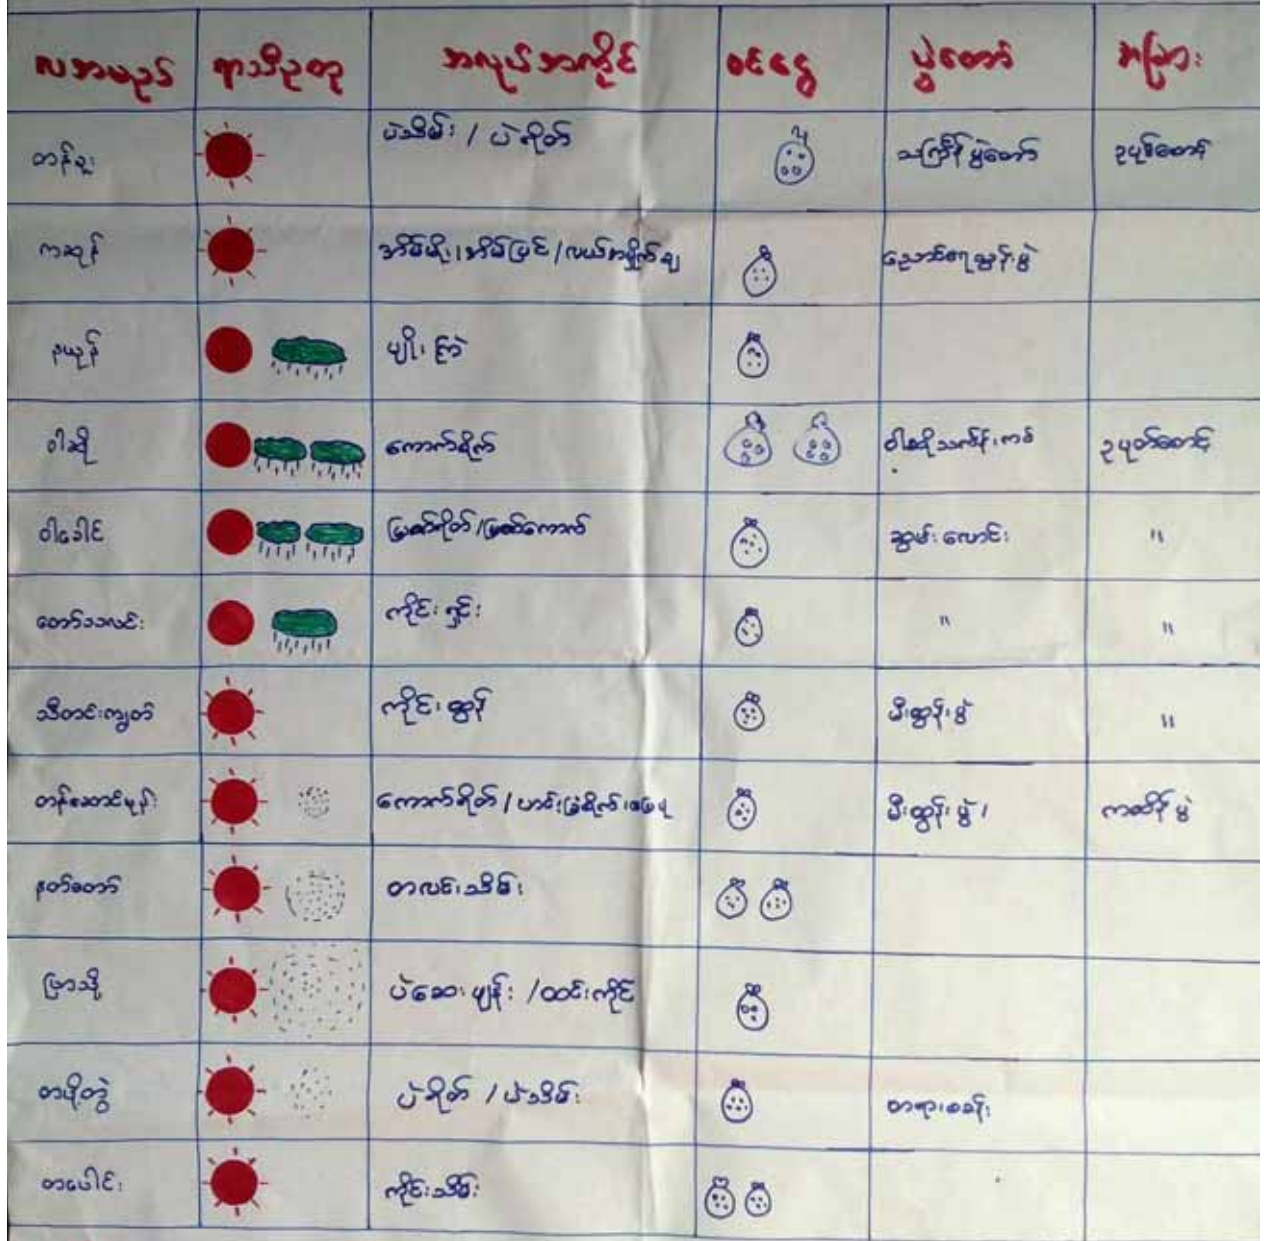 လအမည် ရာသီဥတု အလုပ်အကိုင် ဝင်ငွေ ပွဲတော် အခြား
တန်ခူး ပဲသိမ်း / ပဲရိတ် သင်္ကြန်ပွဲတော် ဥပုစ်စောင့်
ကဆုန် အိမ်မိုး၊ အိမ်ပြင် / လယ်အမှိုက်ချ ညောင်ရေသွန်းပွဲ
နယုန် ပျိုးကြဲ
ဝါဆို ကောက်စိုက် ဝါဆိုသင်္ကန်းကပ် ဥပုတ်စောင့်
ဝါခေါင် မြက်ရိတ် / မြက်ကောက် ဆွမ်းလောင်း "
တော်သလင်း ကိုင်းရှင်း " "
သီတင်းကျွတ် ကိုင်းထွန် မီးထွန်းပွဲ "
တန်ဆောင်မုန်း ကောက်ရိတ် / ဟင်းခြံစိုက်၊ မြေပဲ မီးထွန်းပွဲ / ကထိန်ပွဲ
နတ်တော် တလင်းသိမ်း
ပြာသို ပဲဆေးဖျန်း / ထင်းကိုင်
တပို့တွဲ ပဲရိတ် / ပဲသိမ်း တရားစခန်း
တပေါင်း ကိုင်းသိမ်း